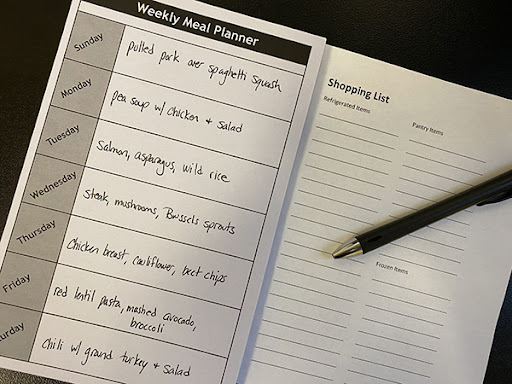 Weekly Meal Planner
Sunday
pulled pork over spaghetti squash
Monday
pea soup w/ chicken + salad
Tuesday
Salmon, asparagus, wild rice
Wednesday
Steak, mushrooms, Brussels sprouts
Thursday
Chicken breast, cauliflower, beet chips
Friday
red lentil pasta, mashed avocado,
broccoli
turday
Chili w/ ground turkey + salad
Shopping List
Refrigerated Items
Pantry Items
Frozen Items